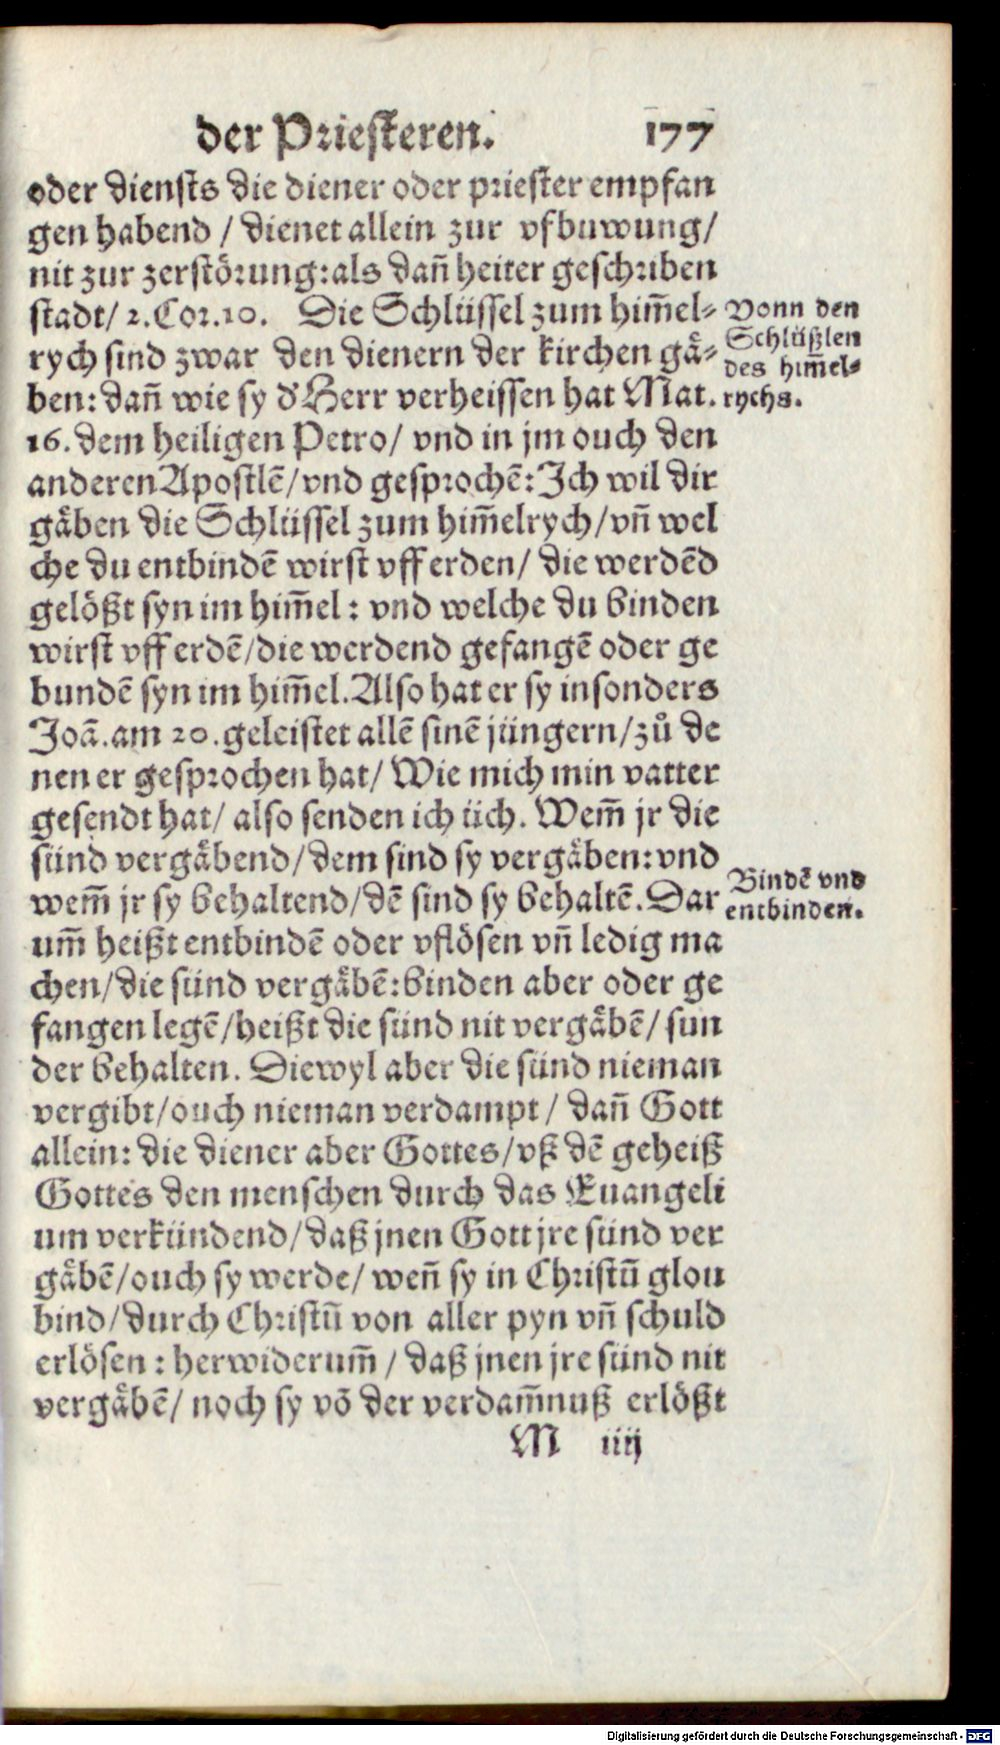 der Priesteren. 177
oder diensts die diener oder priester empfan
gen habend / dienet allein zur vfbuwung/
nit zur zerstörung: als dañ heiter geschriben
stadt/ 2. Cor. 10. Die Schlüssel zum him̃el⸗
rych sind zwar den dienern der kirchen gaͤ⸗
ben: dañ wie sy d' Herr verheissen hat Mat.
16. dem heiligen Petro/ vnd in jm ouch den
anderen Apostlẽ/ vnd gesprochẽ: Ich wil dir
gaͤben die Schlüssel zum him̃elrych/ vñ wel
che du entbindẽ wirst vff erden/ die werdẽd
gelößt syn im him̃el: vnd welche du binden
wirst vff erdẽ/ die werdend gefangẽ oder ge
bundẽ syn im him̃el. Also hat er sy insonders
Joã. am 20. geleistet allẽ sinẽ jüngern/ zů de
nen er gesprochen hat/ Wie mich min vatter
gesendt hat/ also senden ich üch. Wem̃ jr die
sünd vergaͤbend/ dem sind sy vergaͤben: vnd
wem̃ jr sy behaltend/ dẽ sind sy behaltẽ. Dar
um̃ heißt entbindẽ oder vflösen vñ ledig ma
chen/ die sünd vergaͤbẽ: binden aber oder ge
fangen legẽ/ heißt die sünd nit vergaͤbẽ/ sun
der behalten. Diewyl aber die sünd nieman
vergibt/ ouch nieman verdampt/ dañ Gott
allein: die diener aber Gottes/ vß dẽ geheiß
Gottes den menschen durch das Euangeli
um verkündend/ daß jnen Gott jre sünd ver
gaͤbẽ/ ouch sy werde/ weñ sy in Christũ glou
bind/ durch Christũ von aller pyn vñ schuld
erlösen: herwiderum̃ / daß jnen jre sünd nit
vergaͤbẽ/ noch sy võ der verdam̃nuß erlößt
M iiij
Vonn den
Schlüßlen
des him̃el⸗
rychs.
Bindẽ vnd
entbinden.
Digitalisierung gefördert durch die Deutsche Forschungsgemeinschaft - DFG